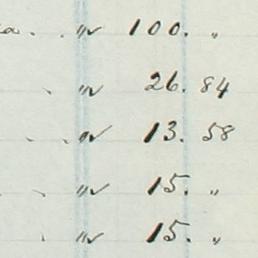 a . . " 100. "
. " 26. 84
. . " 13. 58
. . " 15. "
. " 15. "